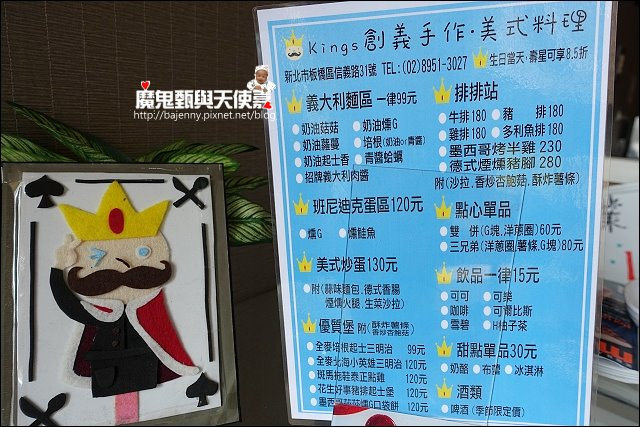 Kings創義手作·美式料理
新北市板橋區信義路31號 TEL:(02)8951-3027
生日當天,壽星可享8.5折
魔鬼甄與天使嘉
http://bajenny.pixnet.net/blog
義大利麵區 一律99元
奶油菇菇 奶油燻G
奶油蘿蔓 培根(奶油or青醬)
奶油起士香 青醬蛤蠣
招牌義大利肉醬
班尼迪克蛋區120元
燻G 燻鮭魚
美式炒蛋130元
附(蒜味麵包.德式香腸
煙燻火腿.生菜沙拉)
優質堡 附(酥炸薯條
香炒杏鮑菇)
全麥培根起士三明治 99元
全麥北海小英雄三明治 120元
斑馬拖鞋泰正點雞 120元
花生好事豬排起士堡 120元
墨西哥菇菇燻G口袋餅 120元
排排站
牛排180 豬排180
雞排180 多利魚排180
墨西哥烤半雞 230
德式煙燻豬腳 280
附(沙拉.香炒杏鮑菇.酥炸薯條)
點心單品
雙 併(G塊,洋蔥圈)60元
三兄弟(洋蔥圈,薯條,G塊)80元
飲品一律15元
可可 可樂
咖啡 可爾比斯
雪碧 H柚子茶
甜點單品30元
奶酪 布蕾 冰淇淋
酒類
啤酒 (季節限定價)
業